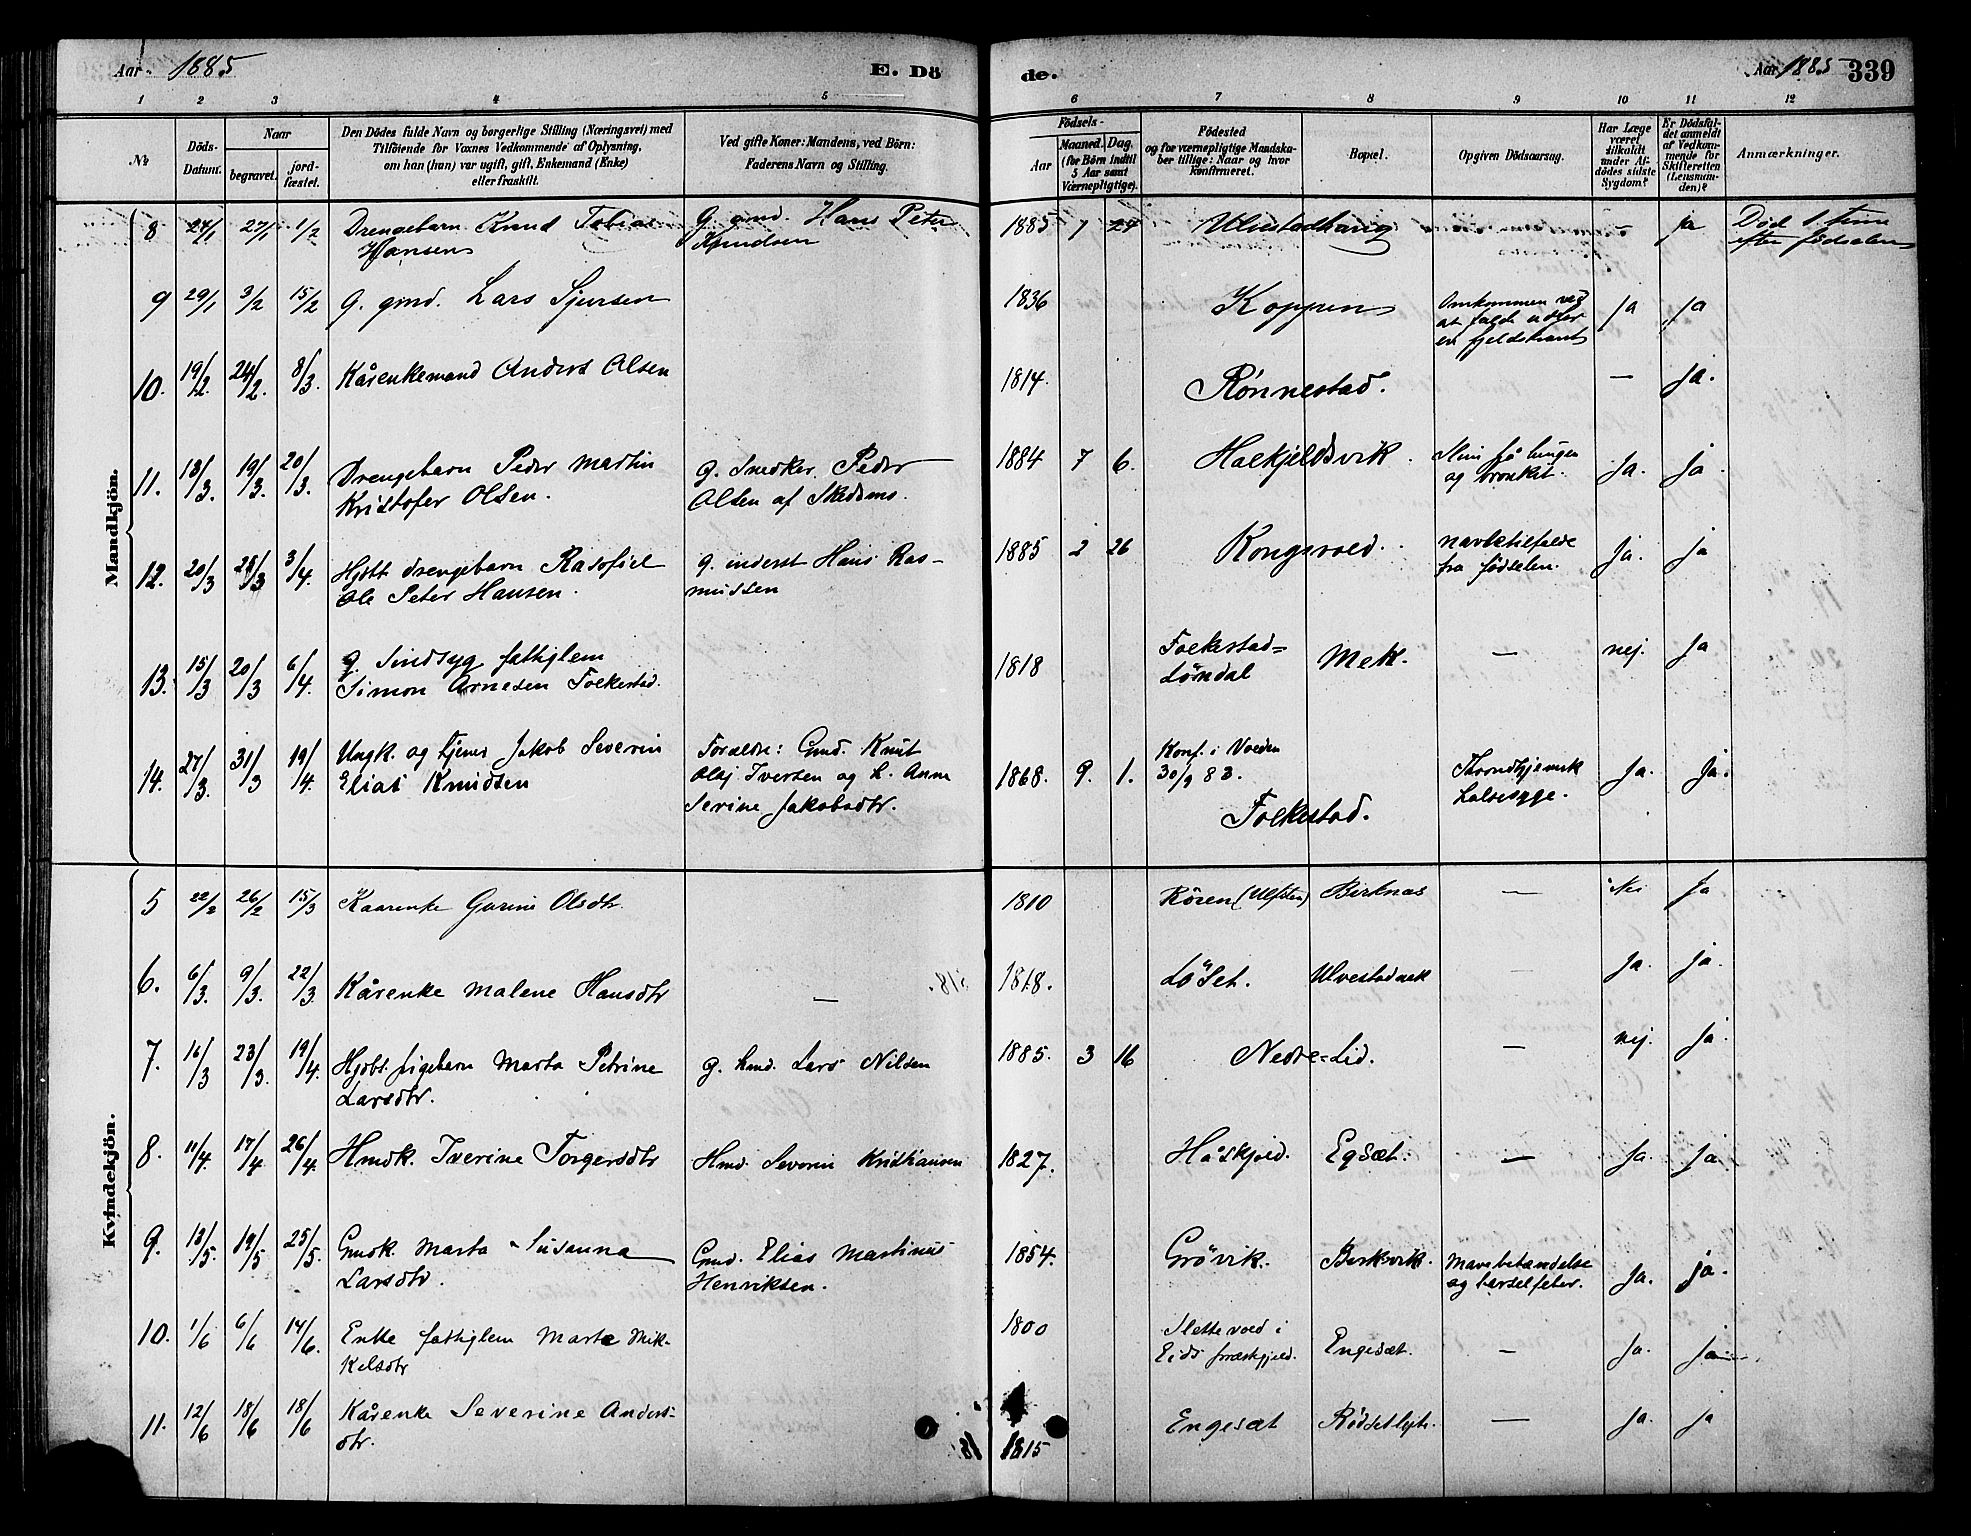 Aar 1885
E. Dö
de.
Aar 1885 339
1 2 3 4 5 6 7 8 9 10 11 12
No
Döds-
Datum.
Naar
begravet.
jord-
fæstet.
Den Dödes fulde Navn og borgerlige Stilling (Næringsvei) med
Tilföiende for Voxnes Vedkommende af Oplysning,
om han (hun) var ugift, gift, Enkemand (Enke)
eller fraskilt.
Ved gifte Koner: Mandens, ved Börn:
Faderens Navn og Stilling.
Födsels-
Aar
Maaned. Dag.
(for Börn indtil
5 Aar samt
Værnepligtige).
Födested
og for værnepligtige Mandska-
ber tillige: Naar og hvor
konfirmeret.
Bopæl.
Opgiven Dödsaarsag.
Har Læge
været
tilkaldt
under Af-
dödes sidste
Sygdom?
Er Dödsfal-
det anmeldt
af Vedkom-
mende for
Skifteretten
(Lensman-
den)?
Anmærkninger.
Mandkjön.
8 24/1 27/1 1/2 Drengebarn Knud Tobias G. gmd. Hans Peter 1885 1 24 Ulvestadhaug - ja Död 1 time
Hansen Knudsen efter födselen
9 29/1 3/2 15/2 G. gmd. Lars Sjursen 1836 Koppen Omkommen ved ja ja
at falde udfor
en fjeldskrænt
10. 19/2. 24/2. 8/3. Kårenkemand Anders Olsen 1814. Rönnestad. — ja.
11. 18/3. 19/3. 20/3. Drengebarn Peder Martin G. Snedker Peder 1884 7 6. Halkjeldsvik. ja. ja.
Kristofer Olsen. Olsen af Skedsmo. og bronkit.
12. 20/3 28/3 3/4. Hjdbt drengebarn Rasofiel G. inderst Hans Ras- 1885 2 26 Kongsvold. ja. ja
Ole Peter Hansen. mussen fra födselen.
13. 15/3 20/3 6/4. G. Sindsyg fattiglem 1818 Folkestad= Mek. — nej. ja
Simon Arnesen Folkestad. Lömdal
14. 27/3. 31/3 19/4. Ungk. og tjener Jakob Severin Forældre: Gmd. Knut 1868. 9. 1. Konf. i Volden ja. ja.
Elias Knudsen Olaj Iversen og h. Anne 30/9 83. halssyge.
Serine Jakobsdtr. Folkestad.
Kvindekjön.
5 22/2 26/2 15/3 Kaarenke Gurine Olsdtr. 1810 Rören (Ulfsten) Birknes — Nei ja
6. 6/3. 9/3. 22/3. Kårenke Malene Hansdtr — 1818. Löset. Ulvestadmek ja. ja.
7. 16/3 23/3. 19/4. Hjdbt. pigebarn Marta Petrine G. hmd. Lars Nilsen 1885. 3 16 Nedre=Lid. — nej. ja.
Larsdtr.
8. 11/4. 17/4. 26/4. Hmdk. Iverine Torgersdtr Hmd. Severin Kristiansen 1827. Håskjold. Egsæt. — ja. ja.
9. 13/5. 19/5 25/5. Gmdk. Marta Susanna Gmd. Elias Martinus 1854. Grövik. Birkvik. Mavebetændelse ja. ja.
Larsdtr. Henriksen. og barselfeber.
10. 1/6 6/6 14/6. Enke fattiglem Marte Mik- 1800 Slettevold i Engesæt. — ja. ja
kelsdtr Eids præstgjeld.
11. 12/6 18/6 18/6 Kårenke Severine Anders- 1815 Engesæt Rödsetlejte. — ja. ja
dtr.